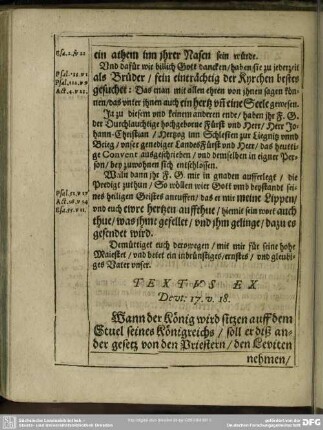 Esa.2.v.22.
ein athem inn jhrer Nasen sein würde.
Und dafür wie billich Gott dancken / haben sie zu jederzeit
als Brüder / fein einträchtig der Kyrchen bestes
gesuchet: Das man mit allen ehren von jhnen sagen kön-
nen / das unter jhnen auch ein hertz uñ eine Seele gewesen.
Act.4.v.32.
Ja zu diesem und keinem anderen ende / haben jhr F. G.
der Durchlauchtige hochgeborne Fürst und Herr / Herr Jo-
hann-Christian / Hertzog inn Schlesien zur Liegnitz unnd
Brieg / unser genediger LandesFürst und Herr / das heuttti-
ge Convent ausgeschrieben / und demselben in eigner Per-
son / bey zuwohnen sich entschlossen.
Wann dann jhr F. G. mir in gnaden aufferlegt / die
Predigt zuthun / So wöllen wier Gott umb beystand sei-
nes heiligen Geistes anruffen / das er mir meine Lippen /
Psal.51.v.17
und euch ewre hertzen auffthue / hiemit sein wort auch
Act.16.v.14
thue / was jhmt gefellet / und jhm gelinge / dazu es
Esa.55.v.11.
gesendet wird.
Demüttiget euch derowegen / mit mir für seine hohe
Maiestet / und betet ein inbrünstiges / ernstes / und gleubi-
ges Vater unser.
TEXTUS EX
Deut. 17. v. 18.
Wann der König wird sitzen auff dem
Stuel seines Königreichs / soll er diß an-
der gesetz von den Priestern / den Leviten
nehmen /
DFG